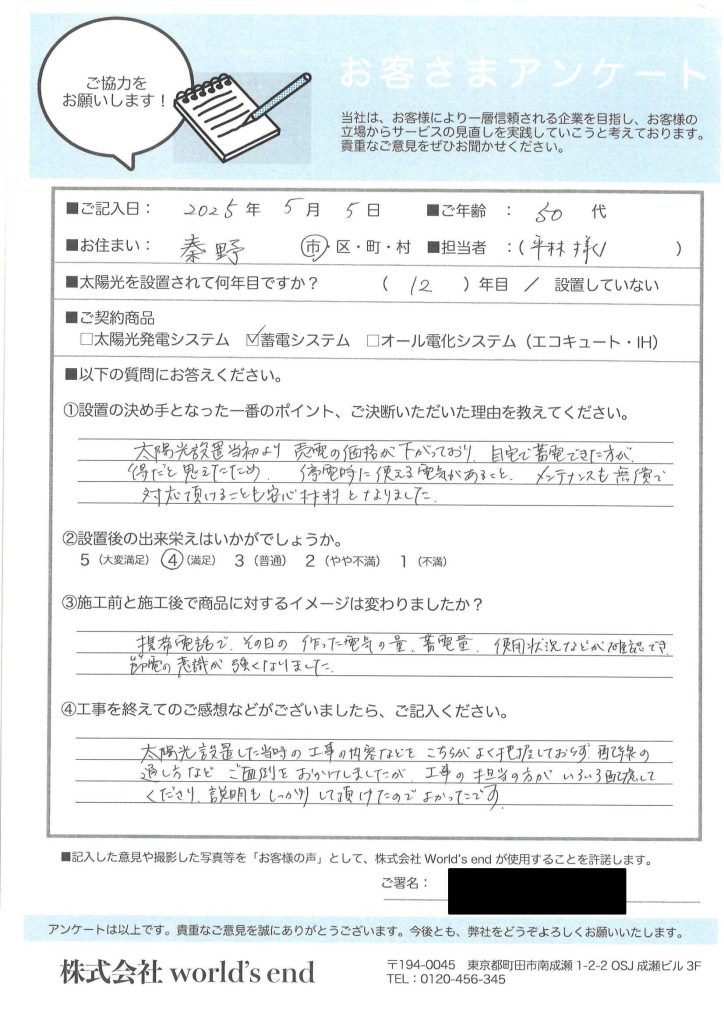 ご協力を
お願いします！
お客さまアンケート
当社は、お客様により一層信頼される企業を目指し、お客様の
立場からサービスの見直しを実践していこうと考えております。
貴重なご意見をぜひお聞かせください。
■ご記入日： 2025年 5月 5日 ■ご年齢 ： 50 代
■お住まい： 秦野 市・区・町・村 ■担当者 ：( 平林様 )
■太陽光を設置されて何年目ですか？ （ 12 ）年目 ／ 設置していない
■ご契約商品
□太陽光発電システム ☑蓄電システム □オール電化システム（エコキュート・IH）
■以下の質問にお答えください。
①設置の決め手となった一番のポイント、ご決断いただいた理由を教えてください。
太陽光設置当初より 売電の価格が下がっており、自宅で蓄電できた方が
得だと思えたため、停電時に使える電気があること、メンテナンスも無償で
対応頂けることも安心材料となりました。
②設置後の出来栄えはいかがでしょうか。
5（大変満足） ④（満足） 3（普通） 2（やや不満） 1（不満）
③施工前と施工後で商品に対するイメージは変わりましたか？
携帯電話で、その日の 作った電気の量、蓄電量、使用状況などが確認でき
節電の意識が 強くなりました。
④工事を終えてのご感想などがございましたら、ご記入ください。
太陽光設置した当時の工事の内容などを こちらがよく把握しておらず、配線の
通し方など ご面倒をおかけしましたが、工事の担当の方が いろいろ配慮して
くださり、説明も しっかり して頂けたのでよかったです。
■記入した意見や撮影した写真等を「お客様の声」として、株式会社 World's end が使用することを許諾します。
ご署名：
アンケートは以上です。貴重なご意見を誠にありがとうございます。今後とも、弊社をどうぞよろしくお願いいたします。
株式会社 world's end
〒194-0045 東京都町田市南成瀬 1-2-2 OSJ 成瀬ビル 3F
TEL：0120-456-345